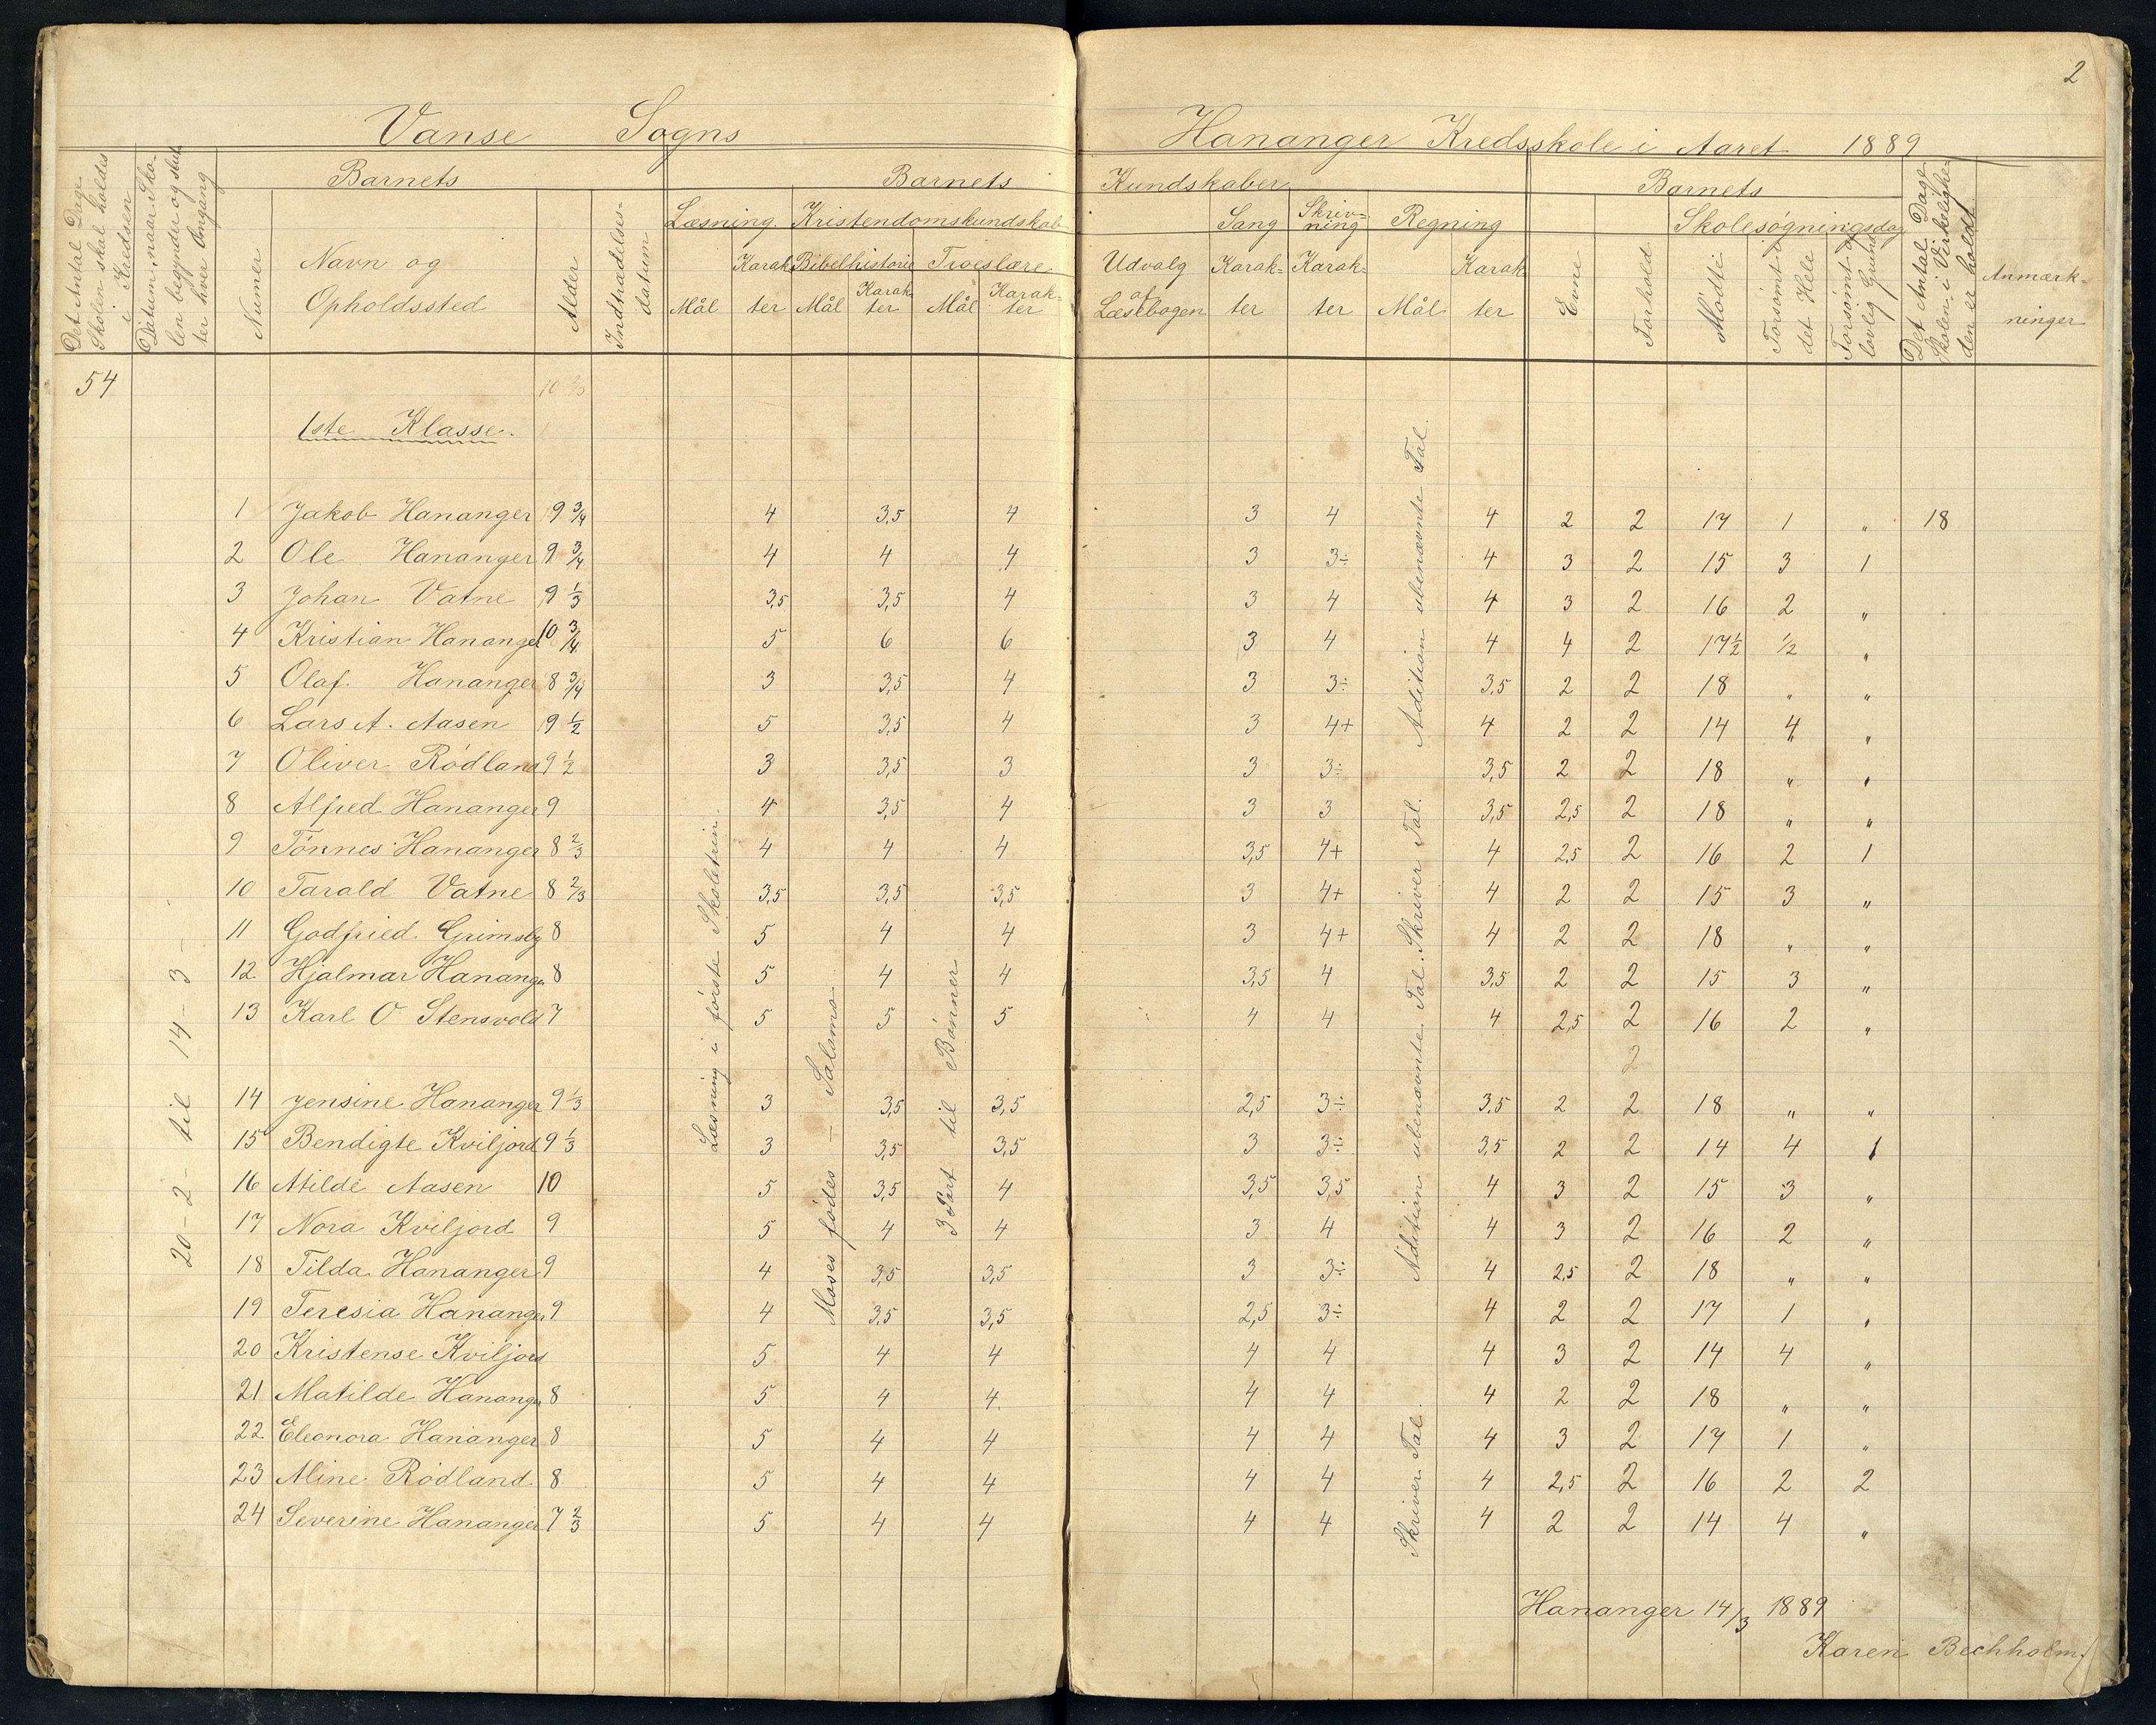 2
Vanse Sogns Hananger Kredsskole i Aaret 1889
Det Antal Dage Skolen skal holdes i Kredsen
Datum, naar Skolen begynder og slutter hver Omgang
Barnets
Numer
Navn og Opholdssted
Alder
Indtrædelsesdatum
Barnets Kundskaber
Læsning. Kristendomskundskab
Mål Karakter
Bibelhistorie Mål Karakter
Troeslære Mål Karakter
Udvalg af Læsebogen
Sang Karakter
Skrivning Karakter
Regning Mål Karakter
Barnets
Evne
Forhold
Skolesøgningsdag
Mødt
Forsømt i det Hele
Forsømt af lovlig Grund
Det Antal Dage Skolen i Virkeligheden er holdt
Anmærkninger
54
1ste Klasse.
20-2- til 14-3-
Læsning i første Skoletrin.
Moses fødes — Salomo
3 Part til Bønner
Adition ubenævnte Tal.
Adition ubenævnte Tal. Skriver Tal.
Skriver Tal.
1 Jakob Hananger 9 3/4 4 3,5 4 3 4 4 2 2 17 1 „ 18
2 Ole Hananger 9 3/4 4 4 4 3 3÷ 4 3 2 15 3 1
3 Johan Vatne 9 1/3 3,5 3,5 4 3 4 4 3 2 16 2 „
4 Kristian Hananger 10 3/4 5 6 6 3 4 4 4 2 17 1/2 1/2 „
5 Olaf Hananger 8 3/4 3 3,5 4 3 3÷ 3,5 2 2 18 „ „
6 Lars A. Aasen 9 1/2 5 3,5 4 3 4+ 4 2 2 14 4 „
7 Oliver Rødland 9 1/2 3 3,5 3 3 3÷ 3,5 2 2 18 „ „
8 Alfred Hananger 9 4 3,5 4 3 3 3,5 2,5 2 18 „ „
9 Tønnes Hananger 8 2/3 4 4 4 3,5 4+ 4 2,5 2 16 2 1
10 Tarald Vatne 8 2/3 3,5 3,5 3,5 3 4+ 4 2 2 15 3 „
11 Godfried Grimsby 8 5 4 4 3 4+ 4 2 2 18 „ „
12 Hjalmar Hananger 8 5 4 4 3,5 4 3,5 2 2 15 3 „
13 Karl O Stensvold 7 5 5 5 4 4 4 2,5 2 16 2 „
2
14 Jensine Hananger 9 1/3 3 3,5 3,5 2,5 3÷ 3,5 2 2 18 „ „
15 Bendigte Kviljord 9 1/3 3 3,5 3,5 3 3÷ 3,5 2 2 14 4 1
16 Milde Aasen 10 5 3,5 4 3,5 3,5 4 3 2 15 3 „
17 Nora Kviljord 9 5 4 4 3 4 4 3 2 16 2 „
18 Tilda Hananger 9 4 3,5 3,5 3 3÷ 4 2,5 2 18 „ „
19 Teresia Hananger 9 4 3,5 3,5 2,5 3÷ 4 2 2 17 1 „
20 Kristense Kviljord 5 4 4 4 4 4 3 2 14 4 „
21 Matilde Hananger 8 5 4 4 4 4 4 2 2 18 „ „
22 Eleonora Hananger 8 5 4 4 4 4 4 3 2 17 1 „
23 Mine Rødland 8 5 4 4 4 4 4 2,5 2 16 2 2
24 Severine Hananger 7 2/3 5 4 4 4 4 4 2 2 14 4 „
Hananger 14/3 1889
Karen Bechholm